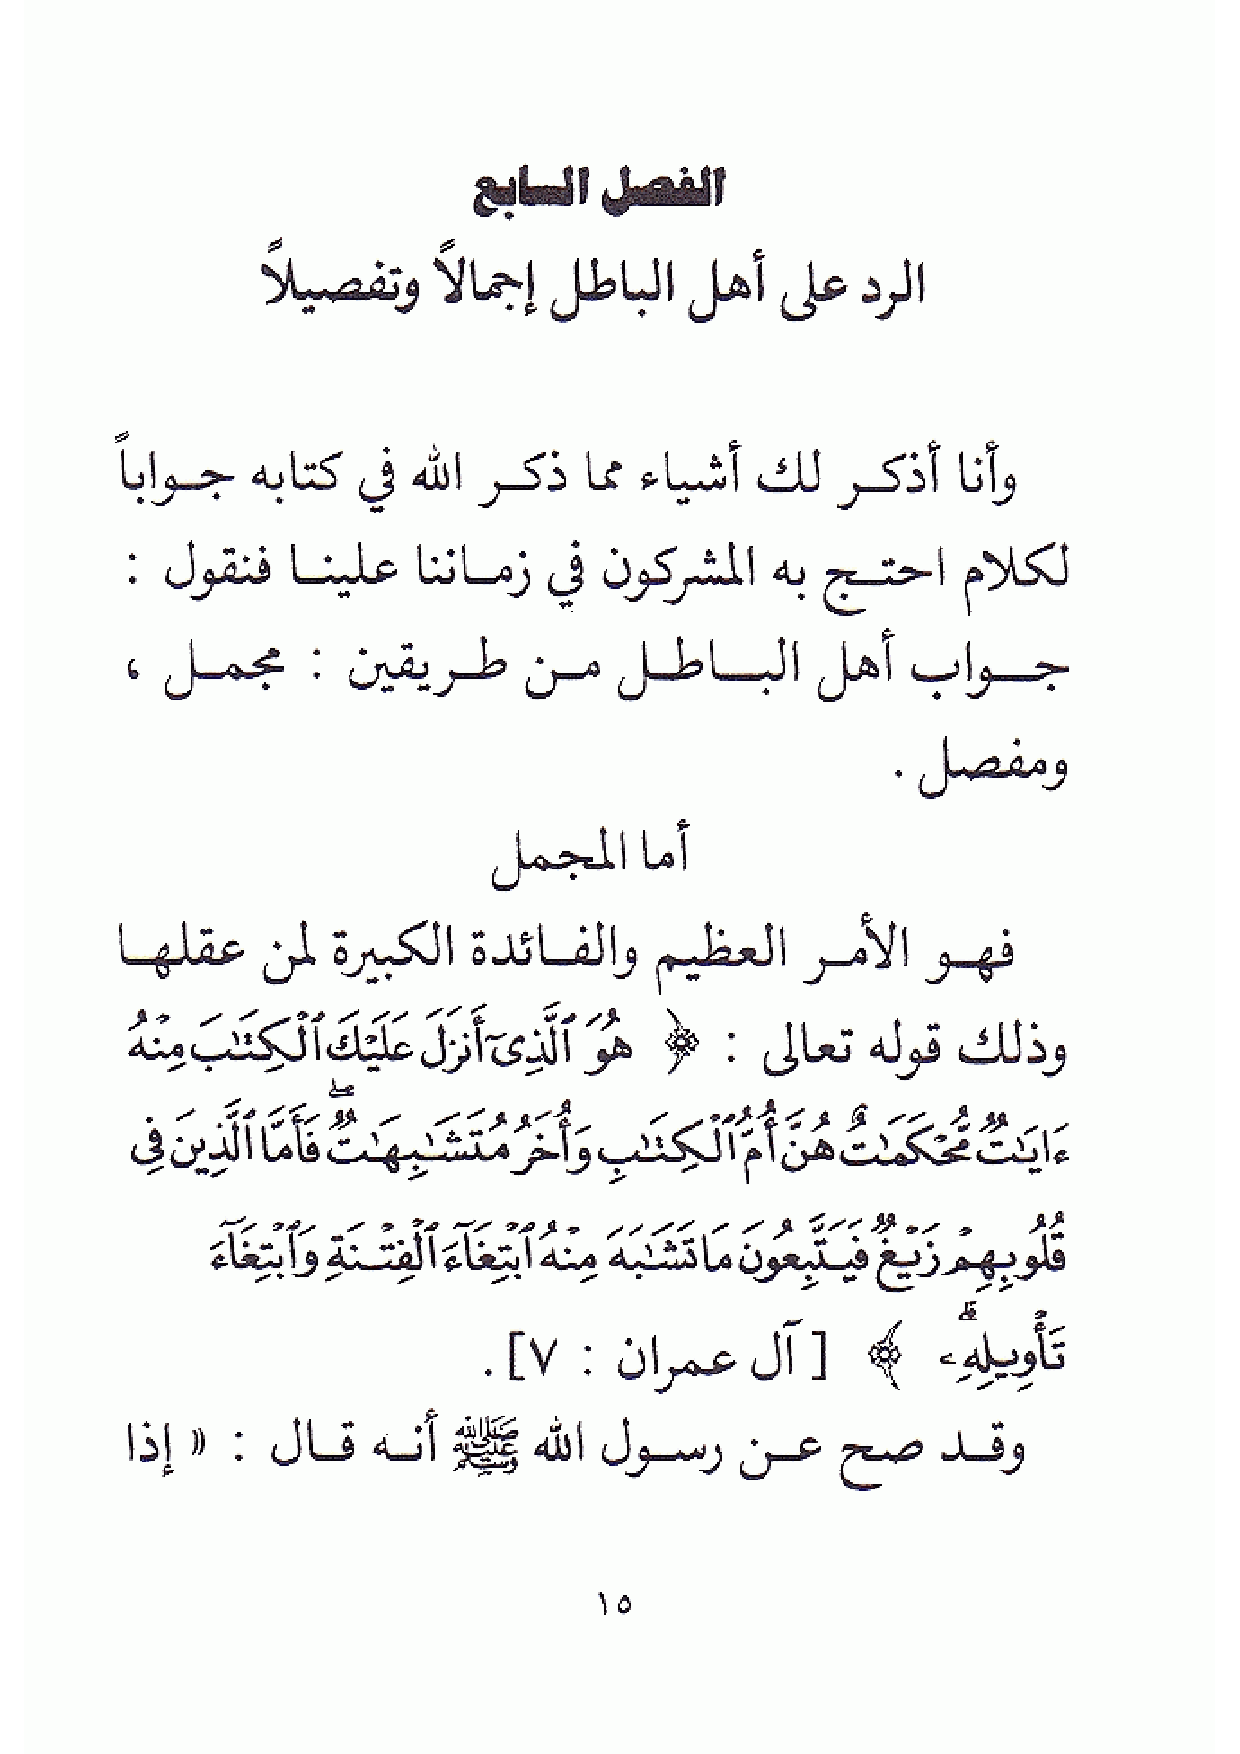 الفصل السابع
الرد على أهل الباطل إجمالاً وتفصيلاً
وأنا أذكر لك أشياء مما ذكر الله في كتابه جواباً
لكلام احتج به المشركون في زماننا علينا فنقول :
جواب أهل الباطل من طريقين : مجمل ،
ومفصل .
أما المجمل
فهو الأمر العظيم والفائدة الكبيرة لمن عقلها
وذلك قوله تعالى : ﴿ هُوَ ٱلَّذِىٓ أَنزَلَ عَلَيۡكَ ٱلۡكِتَٰبَ مِنۡهُ
ءَايَٰتٞ مُّحۡكَمَٰتٌ هُنَّ أُمُّ ٱلۡكِتَٰبِ وَأُخَرُ مُتَشَٰبِهَٰتٞۖ فَأَمَّا ٱلَّذِينَ فِي
قُلُوبِهِمۡ زَيۡغٞ فَيَتَّبِعُونَ مَا تَشَٰبَهَ مِنۡهُ ٱبۡتِغَآءَ ٱلۡفِتۡنَةِ وَٱبۡتِغَآءَ
تَأۡوِيلِهِۦۗ ﴾ [ آل عمران : ٧] .
وقد صح عن رسول الله ﷺ أنه قال : « إذا
١٥